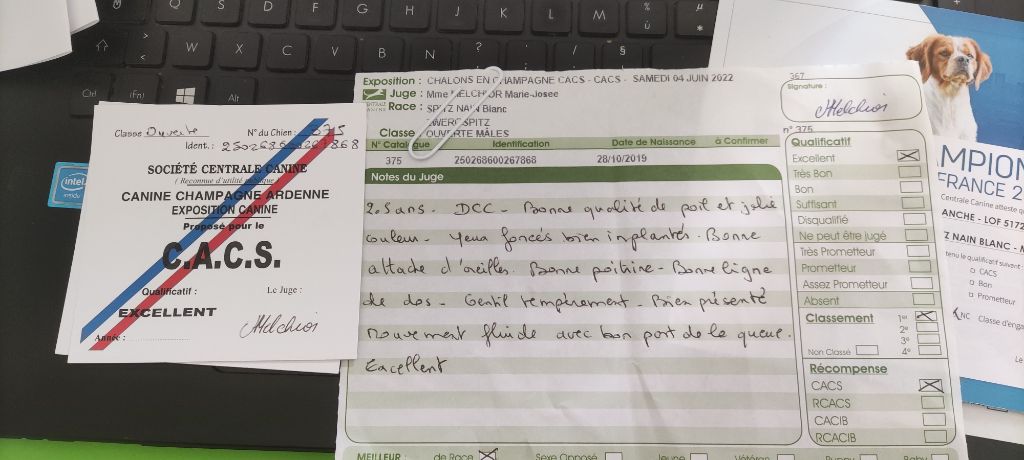 Q S D F G H J K L M % ù µ *
> < W X C V B N ? , . / § !
Alt
intel
Classe Ouverte N° du Chien : 375
Ident. : 250268600267868
SOCIÉTÉ CENTRALE CANINE
( Reconnue d'utilité publique )
CANINE CHAMPAGNE ARDENNE
EXPOSITION CANINE
Proposé pour le
C.A.C.S.
Qualificatif : Le Juge :
EXCELLENT
Melchior
Année :
Exposition : CHALONS EN CHAMPAGNE CACS - CACS - SAMEDI 04 JUIN 2022
Juge : Mme MELCHIOR Marie-Josee
Race : SPITZ NAIN Blanc
ZWERGSPITZ
Classe OUVERTE MÂLES
N° Catalogue Identification Date de Naissance à Confirmer
375 250268600267868 28/10/2019
Notes du Juge
2.5 ans. DCC - Bonne qualité de poil et jolie
couleur - Yeux foncés bien implantés - Bonne
attache d'oreilles. Bonne poitrine - Bonne ligne
de dos - Gentil tempérement - Bien présenté
Mouvement fluide avec bon port de la queue.
Excellent
367
Signature :
Melchior
n° 375
Qualificatif
Excellent
Très Bon
Bon
Suffisant
Disqualifié
Ne peut être jugé
Très Prometteur
Prometteur
Assez Prometteur
Absent
Classement 1er
2e
3e
Non Classé 4e
Récompense
CACS
RCACS
CACIB
RCACIB
MEILLEUR : de Race Sexe Opposé Jeune Vétéran Puppy Baby
MPION
FRANCE 2
Centrale Canine atteste q
ANCHE - LOF 5172
Z NAIN BLANC - M
tenu le qualificatif suivant
CACS
Bon
Prometteur
NC Classe d'enga
Le